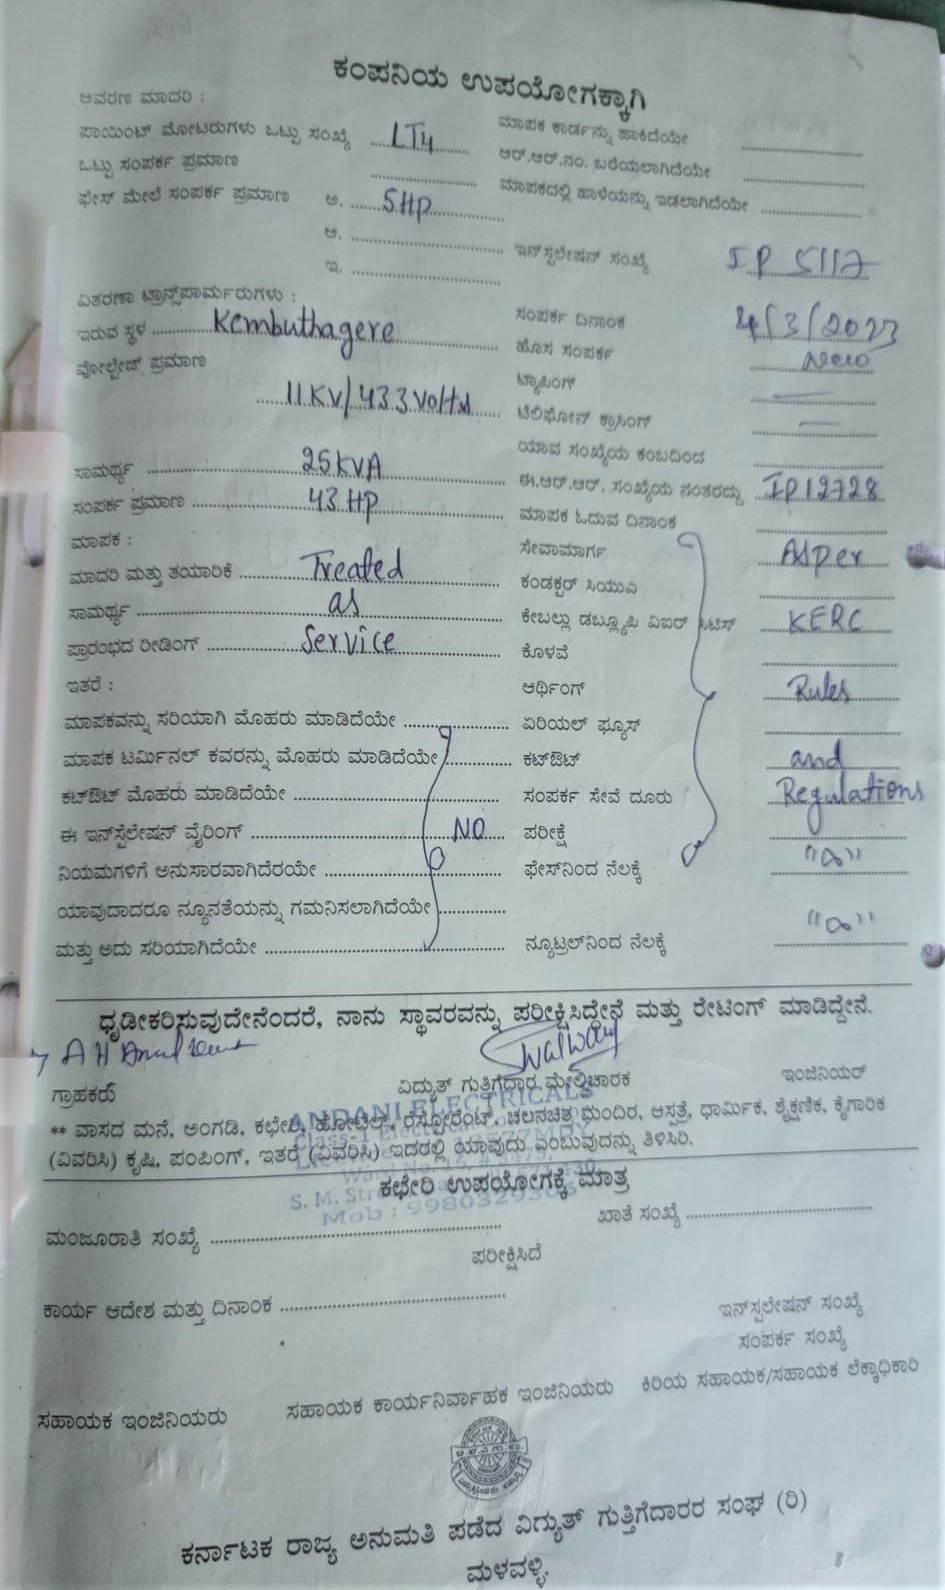 ಕಂಪನಿಯ ಉಪಯೋಗಕ್ಕಾಗಿ
ಆವರಣ ಮಾದರಿ :
ಪಾಯಿಂಟ್ ಮೋಟರುಗಳು ಒಟ್ಟು ಸಂಖ್ಯೆ LT4 ಮಾಪಕ ಕಾರ್ಡನ್ನು ಹಾಕಿದೆಯೇ
ಒಟ್ಟು ಸಂಪರ್ಕ ಪ್ರಮಾಣ ಆರ್.ಆರ್.ನಂ. ಬರೆಯಲಾಗಿದೆಯೇ
ಫೇಸ್ ಮೇಲೆ ಸಂಪರ್ಕ ಪ್ರಮಾಣ ಅ. 5HP ಮಾಪಕದಲ್ಲಿ ಹಾಳೆಯನ್ನು ಇಡಲಾಗಿದೆಯೇ
ಆ. ಇನ್‌ಸ್ಟಲೇಷನ್ ಸಂಖ್ಯೆ IP 5117
ಇ.
ವಿತರಣಾ ಟ್ರಾನ್ಸ್‌ಪಾರ್ಮರುಗಳು :
ಇರುವ ಸ್ಥಳ Kembuthagere ಸಂಪರ್ಕ ದಿನಾಂಕ 4/3/2023
ವೋಲ್ಟೇಜ್ ಪ್ರಮಾಣ ಹೊಸ ಸಂಪರ್ಕ New
11KV/433Volts ಟ್ಯಾಪಿಂಗ್
ಟೆಲಿಫೋನ್ ಕ್ರಾಸಿಂಗ್
ಯಾವ ಸಂಖ್ಯೆಯ ಕಂಬದಿಂದ
ಸಾಮರ್ಥ್ಯ 25KVA ಈ.ಆರ್.ಆರ್. ಸಂಖ್ಯೆಯ ನಂತರದ್ದು IP12728
ಸಂಪರ್ಕ ಪ್ರಮಾಣ 43 HP ಮಾಪಕ ಓದುವ ದಿನಾಂಕ
ಮಾಪಕ : ಸೇವಾಮಾರ್ಗ As per
ಮಾದರಿ ಮತ್ತು ತಯಾರಿಕೆ Treated ಕಂಡಕ್ಟರ್ ಸಿಯುಎ
ಸಾಮರ್ಥ್ಯ as ಕೇಬಲ್ಲು ಡಬ್ಲ್ಯೂಪಿ ವಿಐರ್ KERC
ಪ್ರಾರಂಭದ ರೀಡಿಂಗ್ Service ಕೊಳವೆ
ಇತರೆ : ಆರ್ಥಿಂಗ್ Rules
ಮಾಪಕವನ್ನು ಸರಿಯಾಗಿ ಮೊಹರು ಮಾಡಿದೆಯೇ ಏರಿಯಲ್ ಫ್ಯೂಸ್
ಮಾಪಕ ಟರ್ಮಿನಲ್ ಕವರನ್ನು ಮೊಹರು ಮಾಡಿದೆಯೇ ಕಟ್‌ಔಟ್ and
ಕಟ್‌ಔಟ್ ಮೊಹರು ಮಾಡಿದೆಯೇ ಸಂಪರ್ಕ ಸೇವೆ ದೂರು Regulations
ಈ ಇನ್‌ಸ್ಟೆಲೇಷನ್ ವೈರಿಂಗ್ NO ಪರೀಕ್ಷೆ
ನಿಯಮಗಳಿಗೆ ಅನುಸಾರವಾಗಿದೆರಯೇ ಫೇಸ್‌ನಿಂದ ನೆಲಕ್ಕೆ "∞"
ಯಾವುದಾದರೂ ನ್ಯೂನತೆಯನ್ನು ಗಮನಿಸಲಾಗಿದೆಯೇ
ಮತ್ತು ಅದು ಸರಿಯಾಗಿದೆಯೇ ನ್ಯೂಟ್ರಲ್‌ನಿಂದ ನೆಲಕ್ಕೆ "∞"
ಧೃಡೀಕರಿಸುವುದೇನೆಂದರೆ, ನಾನು ಸ್ಥಾವರವನ್ನು ಪರೀಕ್ಷಿಸಿದ್ದೇನೆ ಮತ್ತು ರೇಟಿಂಗ್ ಮಾಡಿದ್ದೇನೆ.
ಗ್ರಾಹಕರು ವಿದ್ಯುತ್ ಗುತ್ತಿಗೆದಾರ ಮೇಲ್ವಿಚಾರಕ ಇಂಜಿನಿಯರ್
ANDANI ELECTRICALS
** ವಾಸದ ಮನೆ, ಅಂಗಡಿ, ಕಛೇರಿ, ಹೋಟೆಲ್, ರೆಸ್ಟೋರೆಂಟ್, ಚಲನಚಿತ್ರ ಮಂದಿರ, ಆಸ್ಪತ್ರೆ, ಧಾರ್ಮಿಕ, ಶೈಕ್ಷಣಿಕ, ಕೈಗಾರಿಕ
(ವಿವರಿಸಿ) ಕೃಷಿ, ಪಂಪಿಂಗ್, ಇತರೆ (ವಿವರಿಸಿ) ಇದರಲ್ಲಿ ಯಾವುದು ಎಂಬುವುದನ್ನು ತಿಳಿಸಿರಿ.
ಕಛೇರಿ ಉಪಯೋಗಕ್ಕೆ ಮಾತ್ರ
ಮಂಜೂರಾತಿ ಸಂಖ್ಯೆ ಖಾತೆ ಸಂಖ್ಯೆ
ಪರೀಕ್ಷಿಸಿದೆ
ಕಾರ್ಯ ಆದೇಶ ಮತ್ತು ದಿನಾಂಕ ಇನ್‌ಸ್ಪಲೇಷನ್ ಸಂಖ್ಯೆ
ಸಂಪರ್ಕ ಸಂಖ್ಯೆ
ಸಹಾಯಕ ಇಂಜಿನಿಯರು ಸಹಾಯಕ ಕಾರ್ಯನಿರ್ವಾಹಕ ಇಂಜಿನಿಯರು ಕಿರಿಯ ಸಹಾಯಕ/ಸಹಾಯಕ ಲೆಕ್ಕಾಧಿಕಾರಿ
ಕರ್ನಾಟಕ ರಾಜ್ಯ ಅನುಮತಿ ಪಡೆದ ವಿದ್ಯುತ್ ಗುತ್ತಿಗೆದಾರರ ಸಂಘ (ರಿ)
ಮಳವಳ್ಳಿ.